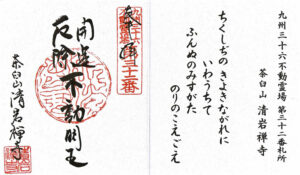 九州三十六不動霊場 第三十二番札所
茶臼山 清岩禅寺
ちくしぢの きよきながれに
いわうちて
ふんぬのみすがた
のりのこえごえ
奉拝
第三十二番
開運
厄除 不動明王
茶臼山 清岩禅寺